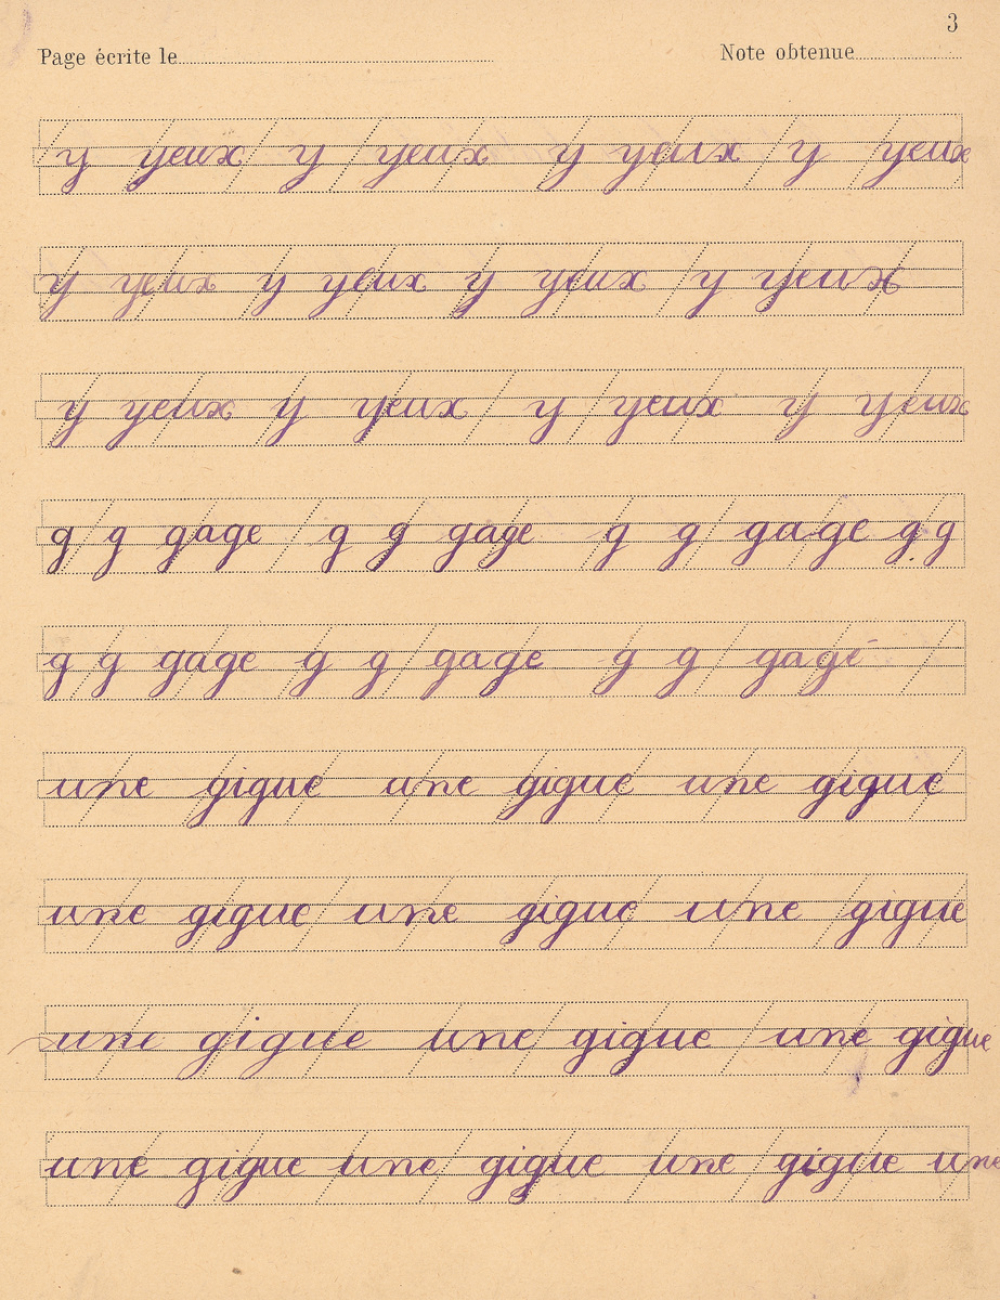 3
Page écrite le Note obtenue
y yeux y yeux y yeux y yeux
y yeux y yeux y yeux y yeux
y yeux y yeux y yeux y yeux
g g gage g g gage g g gage g g
g g gage g g gage g g gage
une gigue une gigue une gigue
une gigue une gigue une gigue
une gigue une gigue une gigue
une gigue une gigue une gigue une